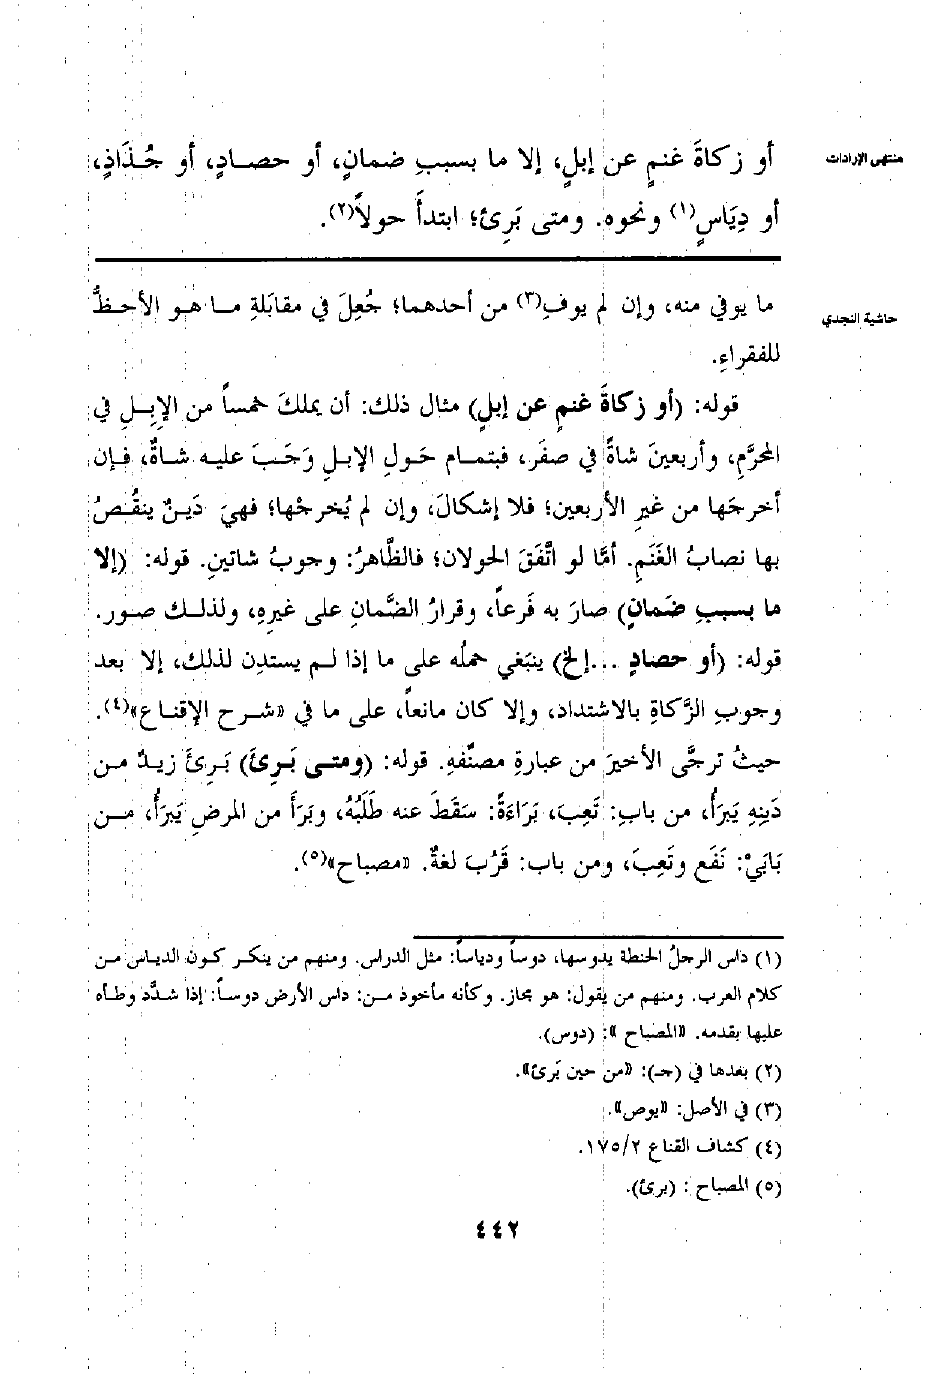 منتهى الإرادات
أو زكاةَ غنمٍ عن إبلٍ، إلا ما بسببِ ضمانٍ، أو حصادٍ، أو جُذَاذٍ،
أو دِيَاسٍ(١) ونحوه. ومتى بَرِئ؛ ابتدأَ حولاً(٢).
حاشية النجدي
ما يوفي منه، وإن لم يوفِ(٣) من أحدهما؛ جُعِلَ في مقابَلةِ ما هو الأحظُّ
للفقراءِ.
قوله: (أو زكاةَ غنمٍ عن إبلٍ) مثال ذلك: أن يملكَ خمساً من الإبِلِ في
المحرَّمِ، وأربعينَ شاةً في صفَر، فبتمام حَولِ الإبلِ وَجَبَ عليه شاةٌ، فإن
أخرجَها من غيرِ الأربعين؛ فلا إشكالَ، وإن لم يُخرجْها؛ فهيَ دَينٌ ينقُصُ
بها نصابُ الغَنَمِ. أمَّا لو اتَّفَقَ الحولان؛ فالظَّاهرُ: وجوبُ شاتينِ. قوله: (إلا
ما بسببِ ضَمانٍ) صارَ به فَرعاً، وقرارُ الضَّمانِ على غيرِهِ، ولذلك صور.
قوله: (أو حصادٍ ...إلخ) ينبَغي حملُه على ما إذا لم يستدِن لذلك، إلا بعد
وجوبِ الزَّكاةِ بالاشتداد، وإلا كان مانعاً، على ما في «شرح الإقناع»(٤).
حيثُ ترجَّى الأخيرَ من عبارةِ مصنِّفهِ. قوله: (ومتى بَرِئَ) بَرِئَ زيدٌ من
دَينِهِ يَبرَأُ، من بابِ: تَعِبَ، بَرَاءَةً: سَقَطَ عنه طَلَبُهُ، وبَرَأَ من المرضِ يَبرَأُ، من
بَابَيْ: نَفَع وتَعِبَ، ومن باب: قَرُبَ لغةٌ. «مصباح»(٥).
(١) داس الرجلُ الحنطة يدوسها، دوساً ودياساً: مثل الدراس. ومنهم من ينكر كون الدياس من
كلام العرب. ومنهم من يقول: هو مجاز. وكأنه مأخوذ من: داس الأرض دوساً: إذا شدَّد وطأه
عليها بقدمه. «المصباح »: (دوس).
(٢) بعدها في (جـ): «من حين بَرئ».
(٣) في الأصل: «يوص».
(٤) كشاف القناع ١٧٥/٢.
(٥) المصباح : (برئ).
٤٤٢